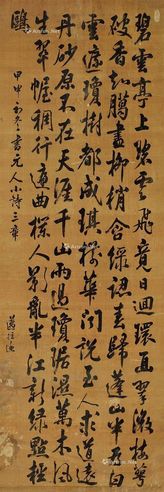 碧雲亭上碧雲飛竟日迴環翠微梅萼
破香知臘盡柳梢含綠認春歸蓬山半夜白
雲遮瓊樹都成琪樹華聞說至人求道遠
丹砂原不在天涯千山雨過瓊琚濕萬木風
生翠幄稠行遍曲闌人影亂半江新綠點輕
鷗
甲申初冬書元人小詩三章